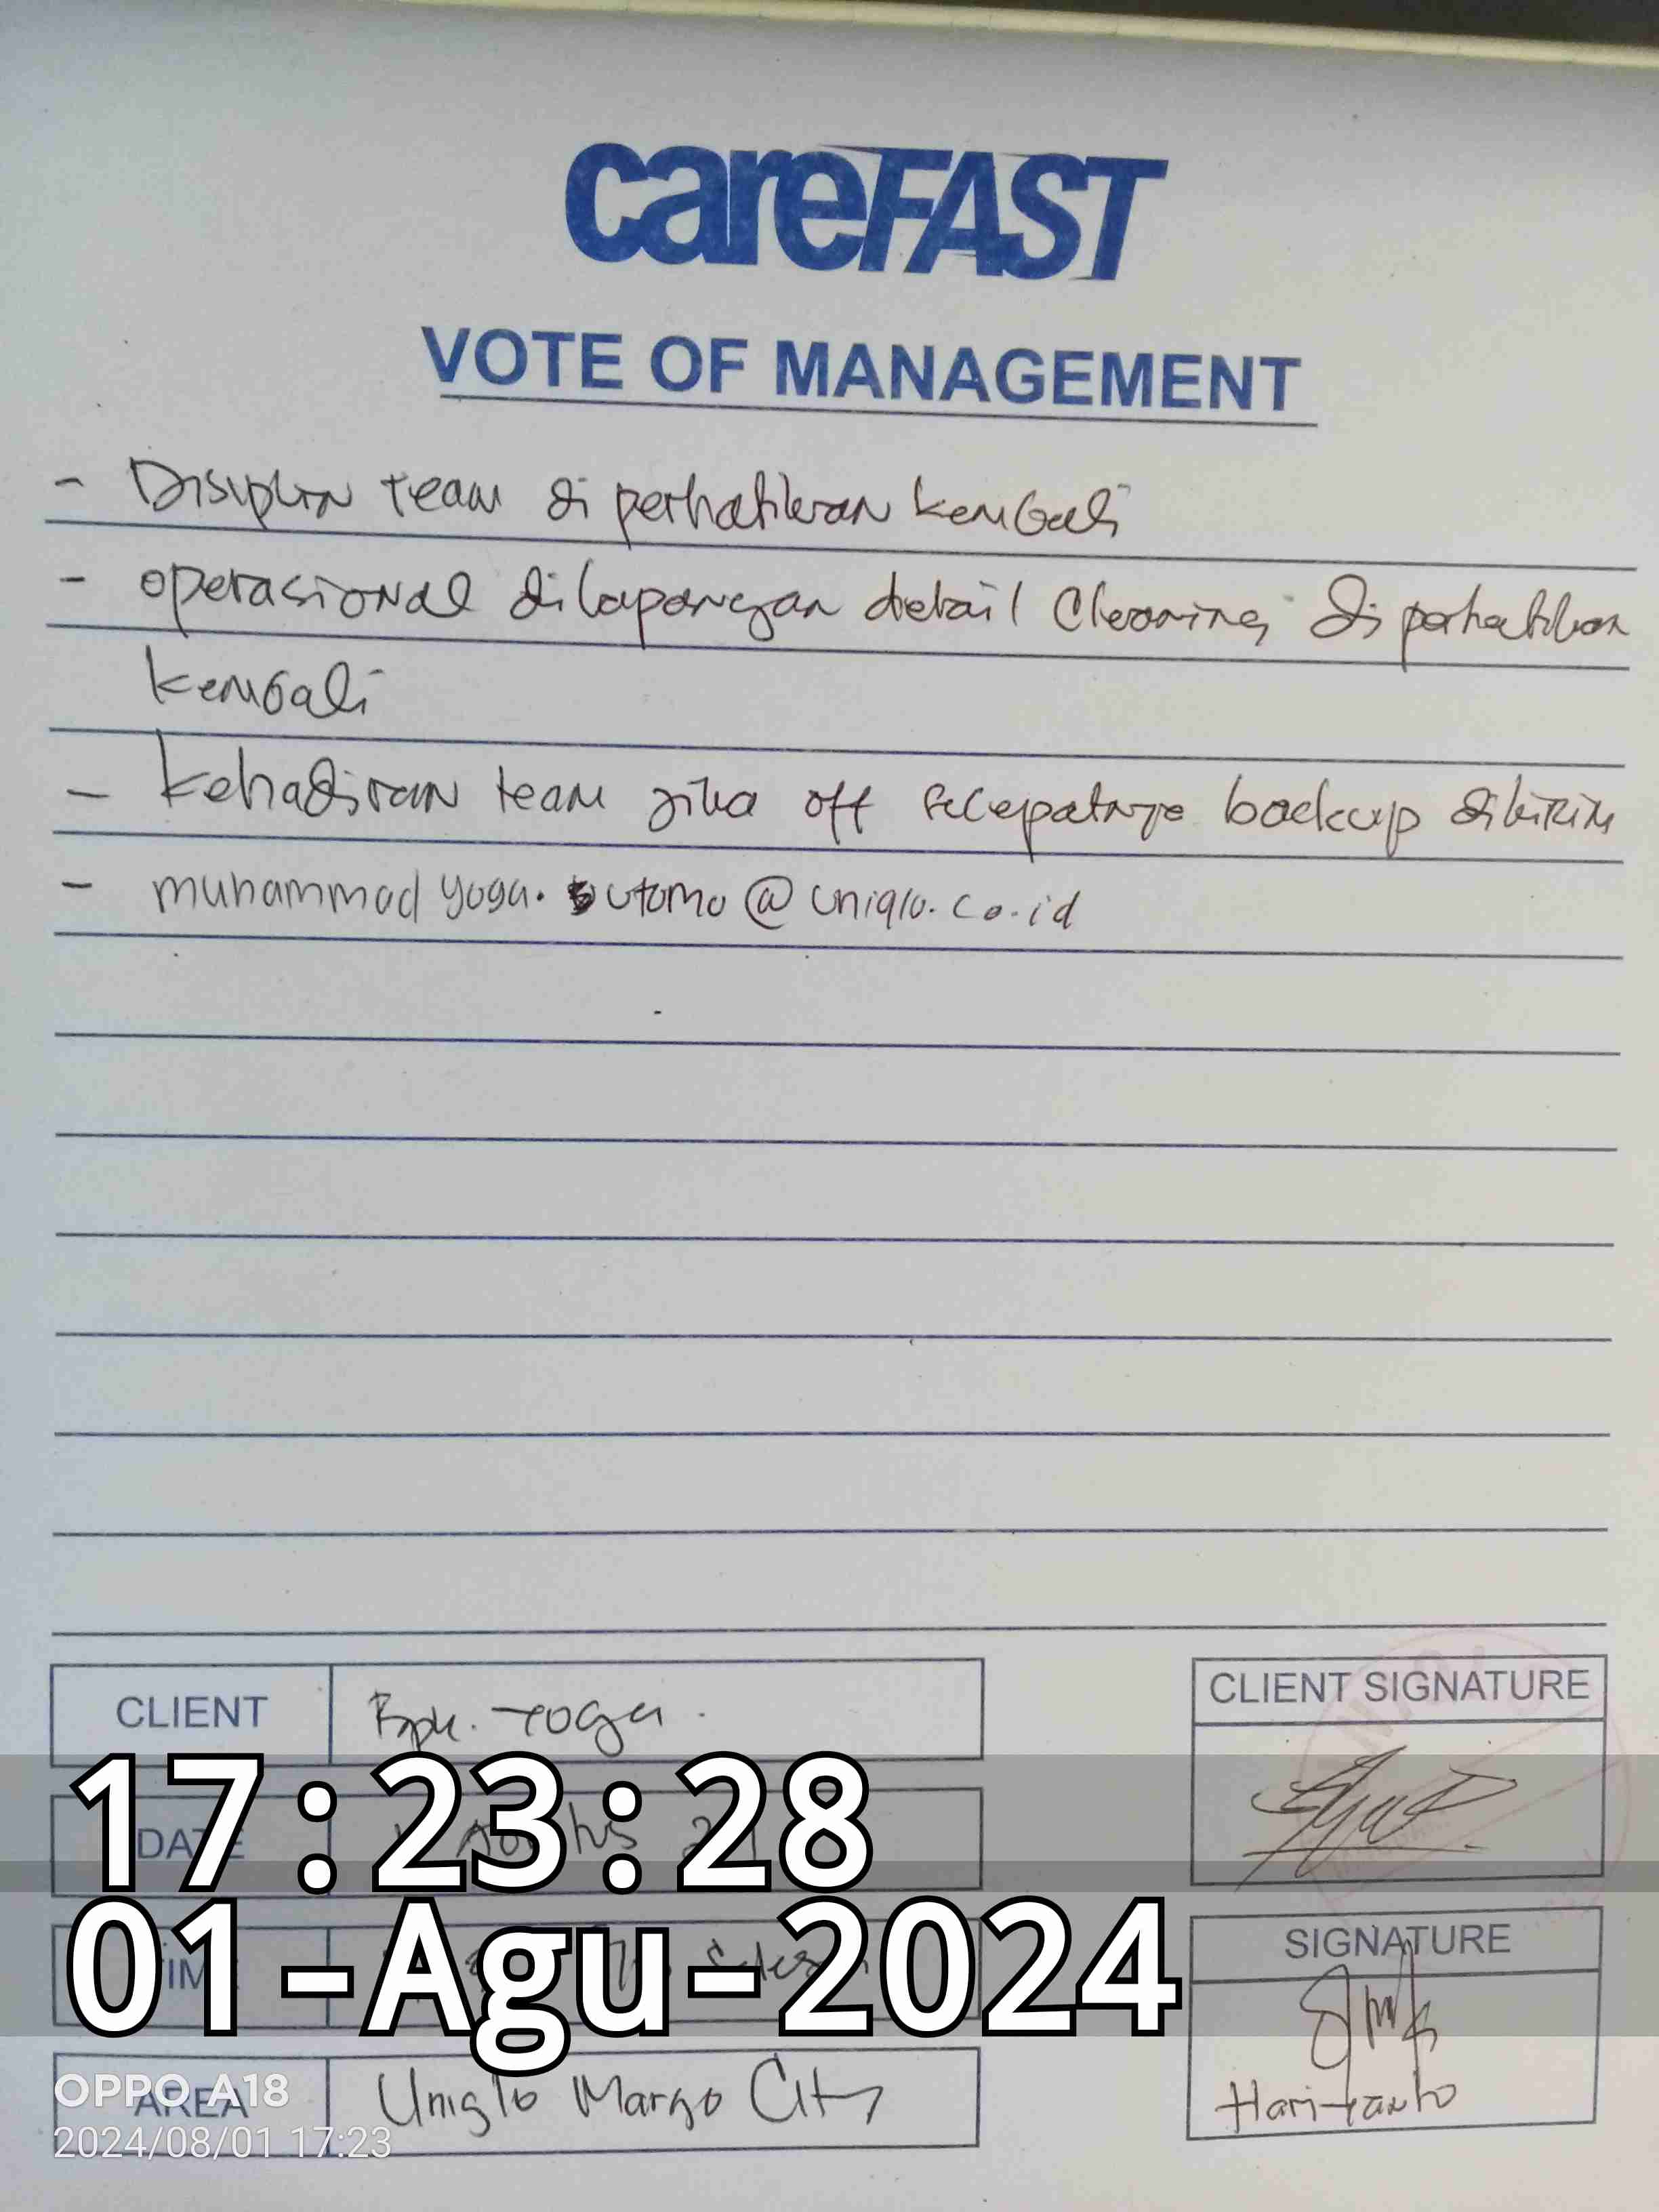 careFAST
VOTE OF MANAGEMENT
- Disiplin team di perhatikan kembali
- operasional dilapangan detail Cleaning di perhatikan
kembali
- kehadiran team jika off secepatnya backup dikirim
- muhammad yoga. utomo @ uniqlo.co.id
CLIENT Bpk. Yoga.
CLIENT SIGNATURE
17:23:28
DATE
01-Agu-2024
TIME
SIGNATURE
AREA Uniqlo Margo City
Hariyanto
OPPO A18
2024/08/01 17:23